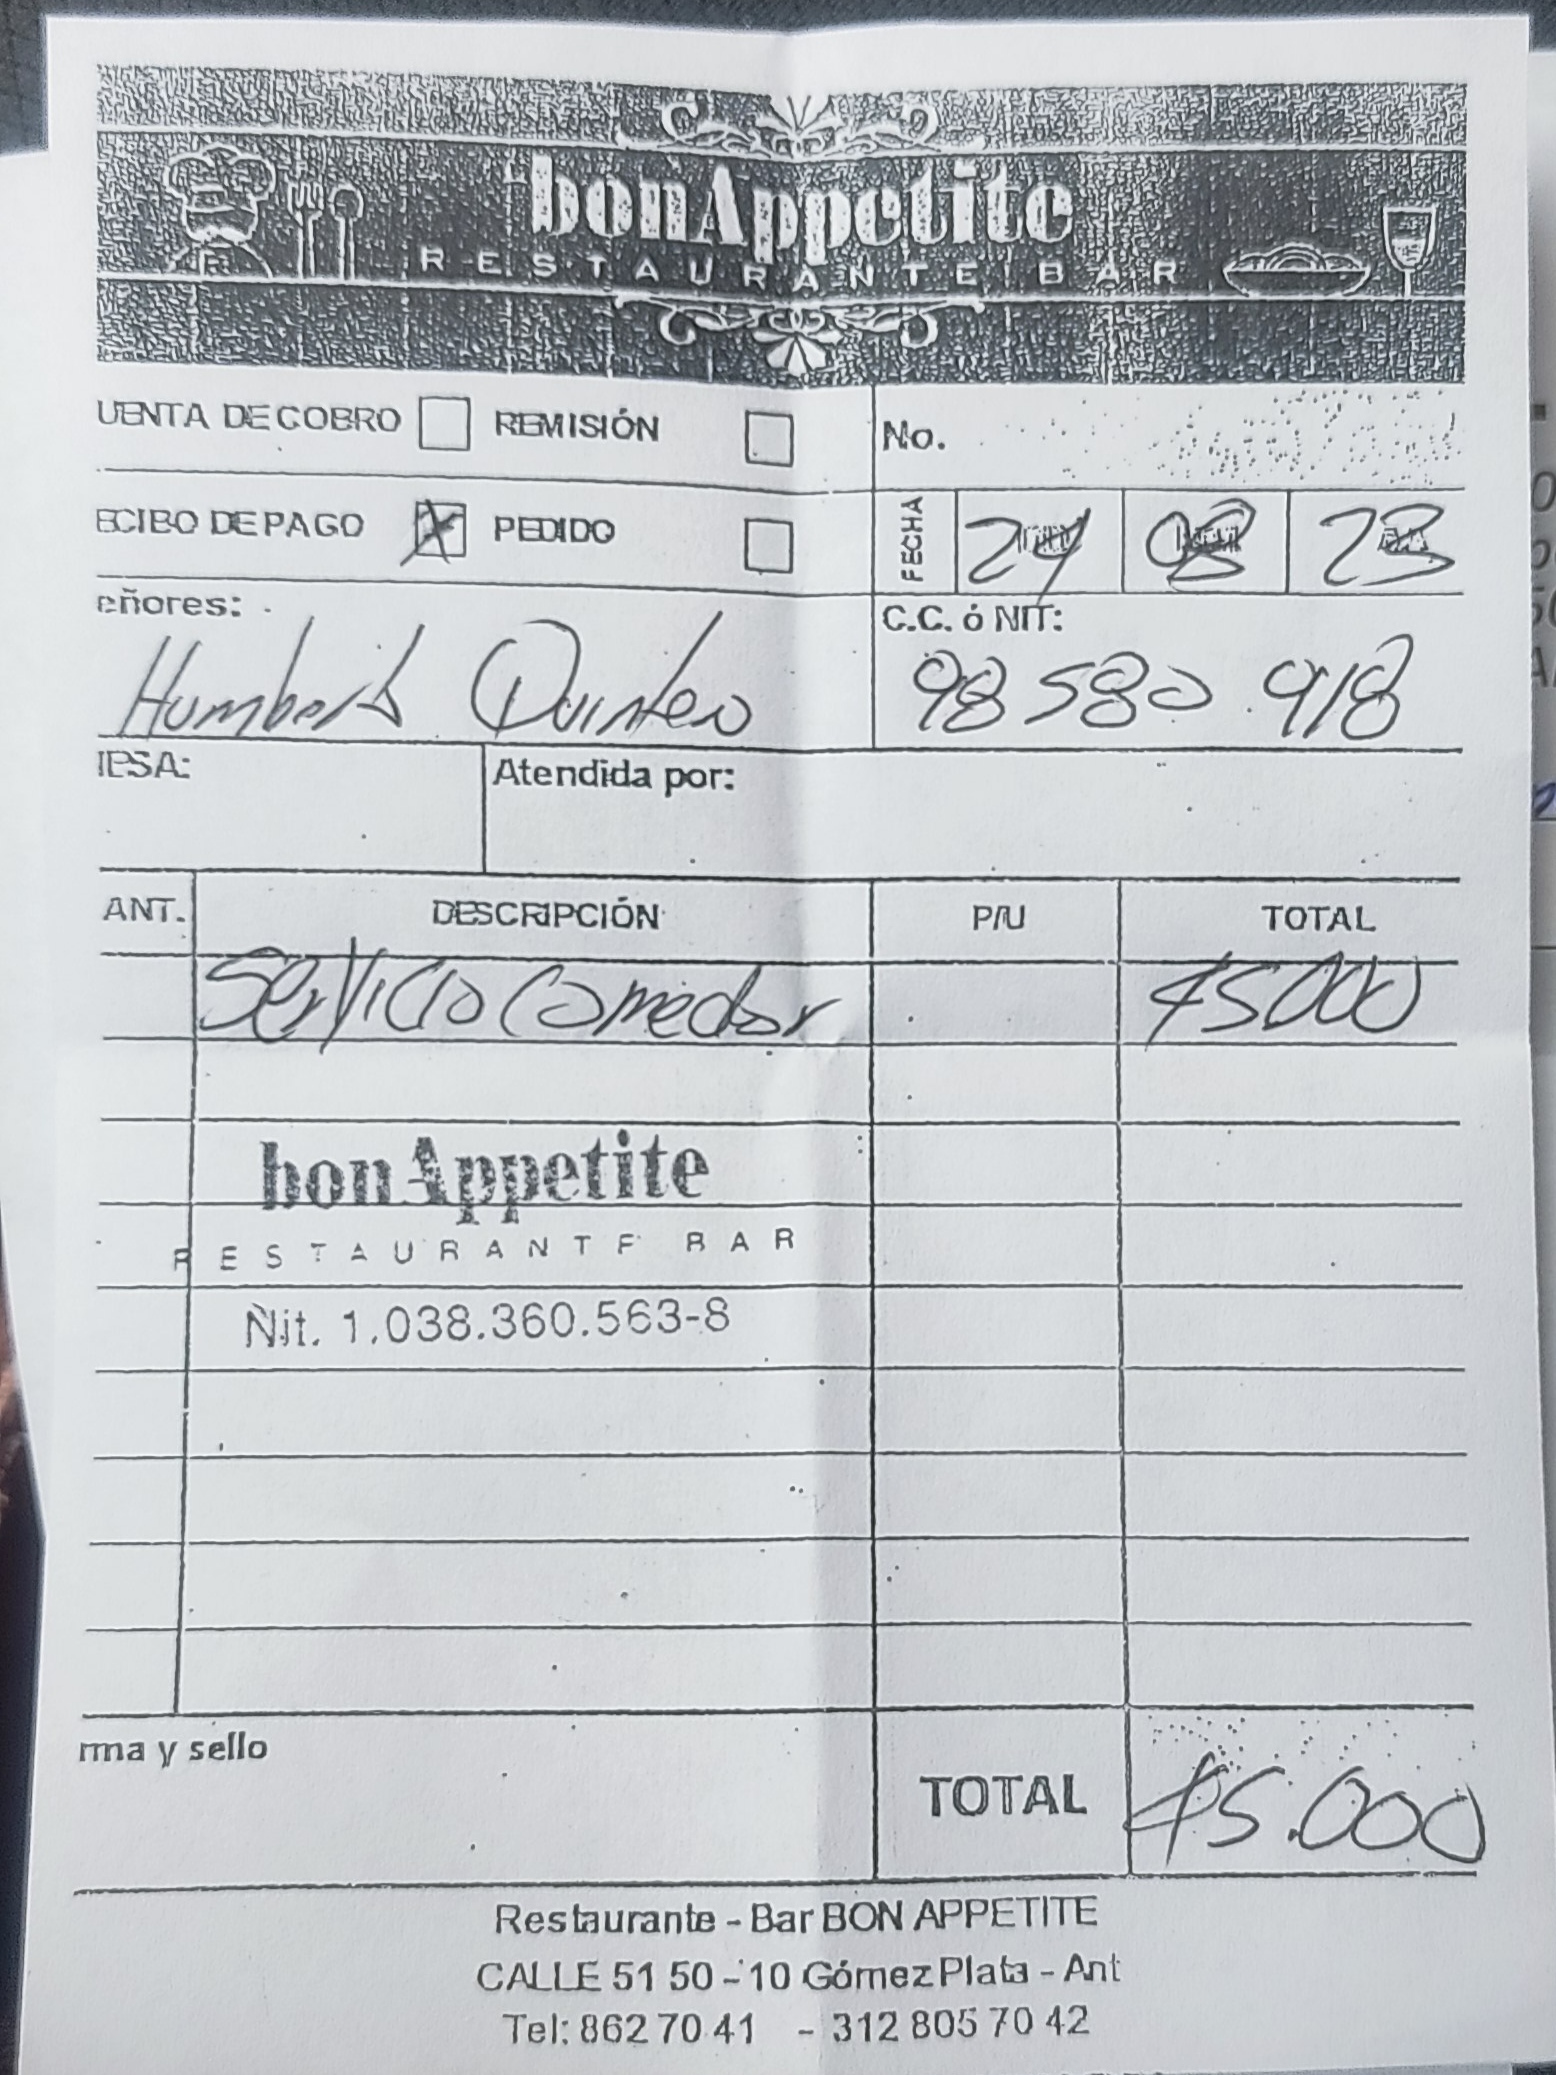 bonAppetite
RESTAURANTE BAR
UENTA DE COBRO REMISIÓN No.
ECIBO DE PAGO X PEDIDO FECHA 24 08 23
eñores: C.C. ó NIT:
Humberto Quintero 98580 918
IESA: Atendida por:
ANT. DESCRIPCIÓN P/U TOTAL
Servicio Comedor 45000
bonAppetite
RESTAURANTE BAR
Nit. 1.038.360.563-8
rma y sello
TOTAL 45.000
Restaurante - Bar BON APPETITE
CALLE 51 50 - 10 Gómez Plata - Ant
Tel: 862 70 41 - 312 805 70 42